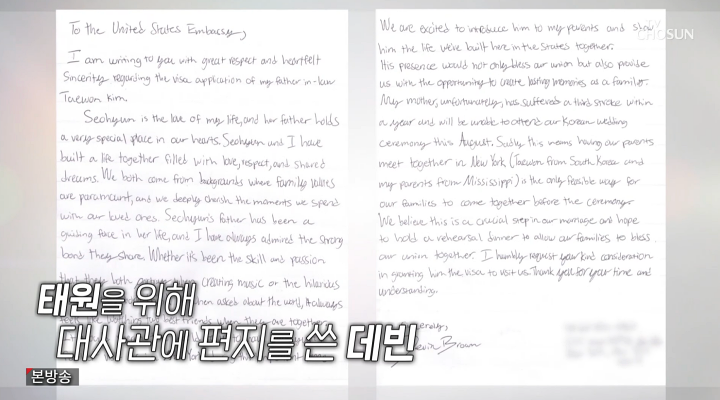 To the United States Embassy,
I am writing to you with great respect and heartfelt
Sincerity regarding the visa application of my father in-law
Taewon Kim.
Seohyun is the love of my life, and her father holds
a very special place in our hearts. Seohyun and I have
built a life together filled with love, respect, and shared
dreams. We both come from backgrounds where family values
are paramount, and we deeply cherish the moments we spend
with our loved ones. Seohyun's father has been a
guiding force in her life, and I have always admired the strong
bond they share. Whether it's been the skill and passion
that they both creating music or the hilarious
when asked about the world, it always
best friends when they are together
We are excited to introduce him to my parents and show
him the life we've built here in the States together.
His presence would not only bless our union but also provide
us with the opportunity to create lasting memories as a family.
My mother, unfortunately, has suffered a third stroke within
a year and will be unable to attend our Korean wedding
ceremony this August. Sadly this means having our parents
meet together in New York (Taewon from South Korean and
my parents from Mississippi) is the only feasible way for
our families to come together before the ceremony.
We believe this is a crucial step in our marriage and hope
to hold a rehearsal dinner to allow our families to bless
our union together. I humbly request your kind consideration
in granting him the visa to visit us. Thank you for your time and
understanding.
Brown
TV CHOSUN
태원을 위해
대사관에 편지를 쓴 데빈
본방송